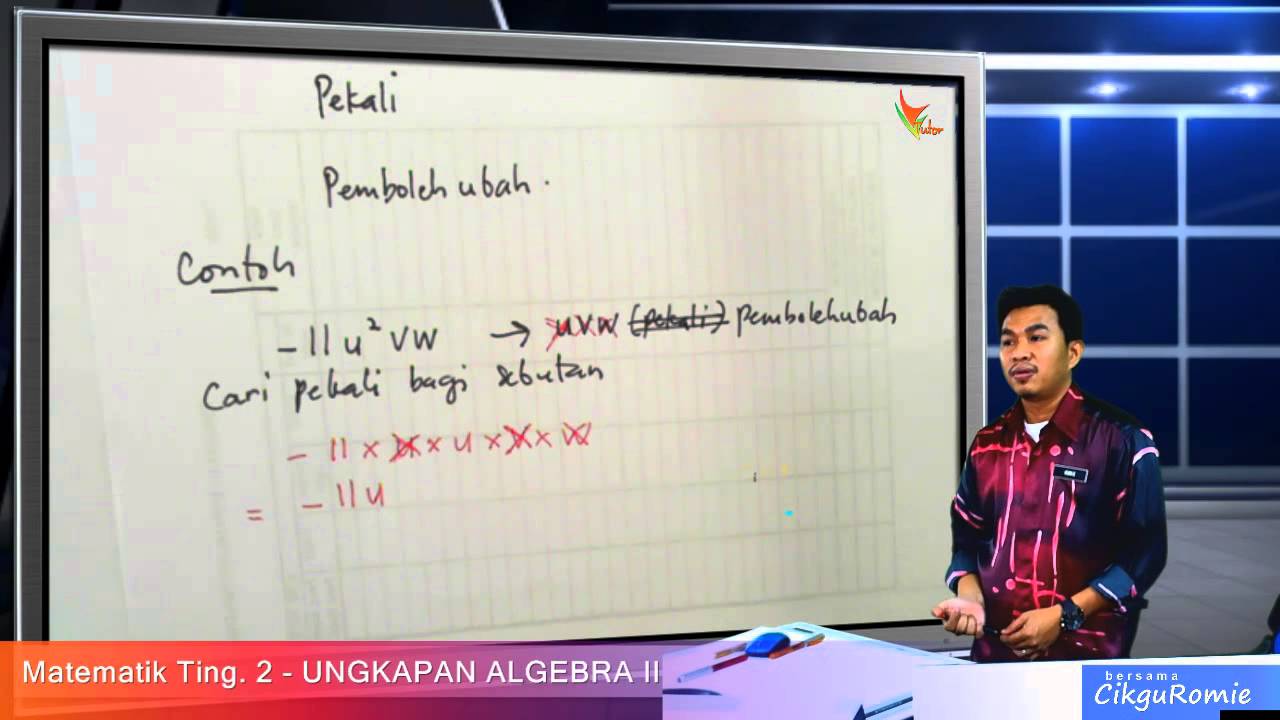 Pekali
Tutor
Pembolehubah.
Contoh
-11u²vw → uvw (pekali) pembolehubah
Cari pekali bagi sebutan
- 11 × u × u × v × w
= - 11u
Matematik Ting. 2 - UNGKAPAN ALGEBRA II
bersama
CikguRomie